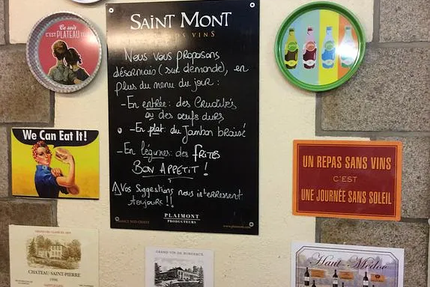 Ce soir
c'est PLATEAU
SAINT MONT
VINS
Nous vous proposons
désormais (sur demande), en
plus du menu du jour :
- En entrée : des Crudités,
ou des oeufs durs
- En plat du Jambon braisé
- En légumes : des FRITES
BON APPÉTIT !
⚠ Vos suggestions nous intéressent
toujours !!
PLAIMONT
PRODUCTEURS
We Can Eat It!
UN REPAS SANS VINS
C'EST
UNE JOURNÉE SANS SOLEIL
CHATEAU SAINT-PIERRE
GRAND VIN DE BORDEAUX
Haut-Médoc